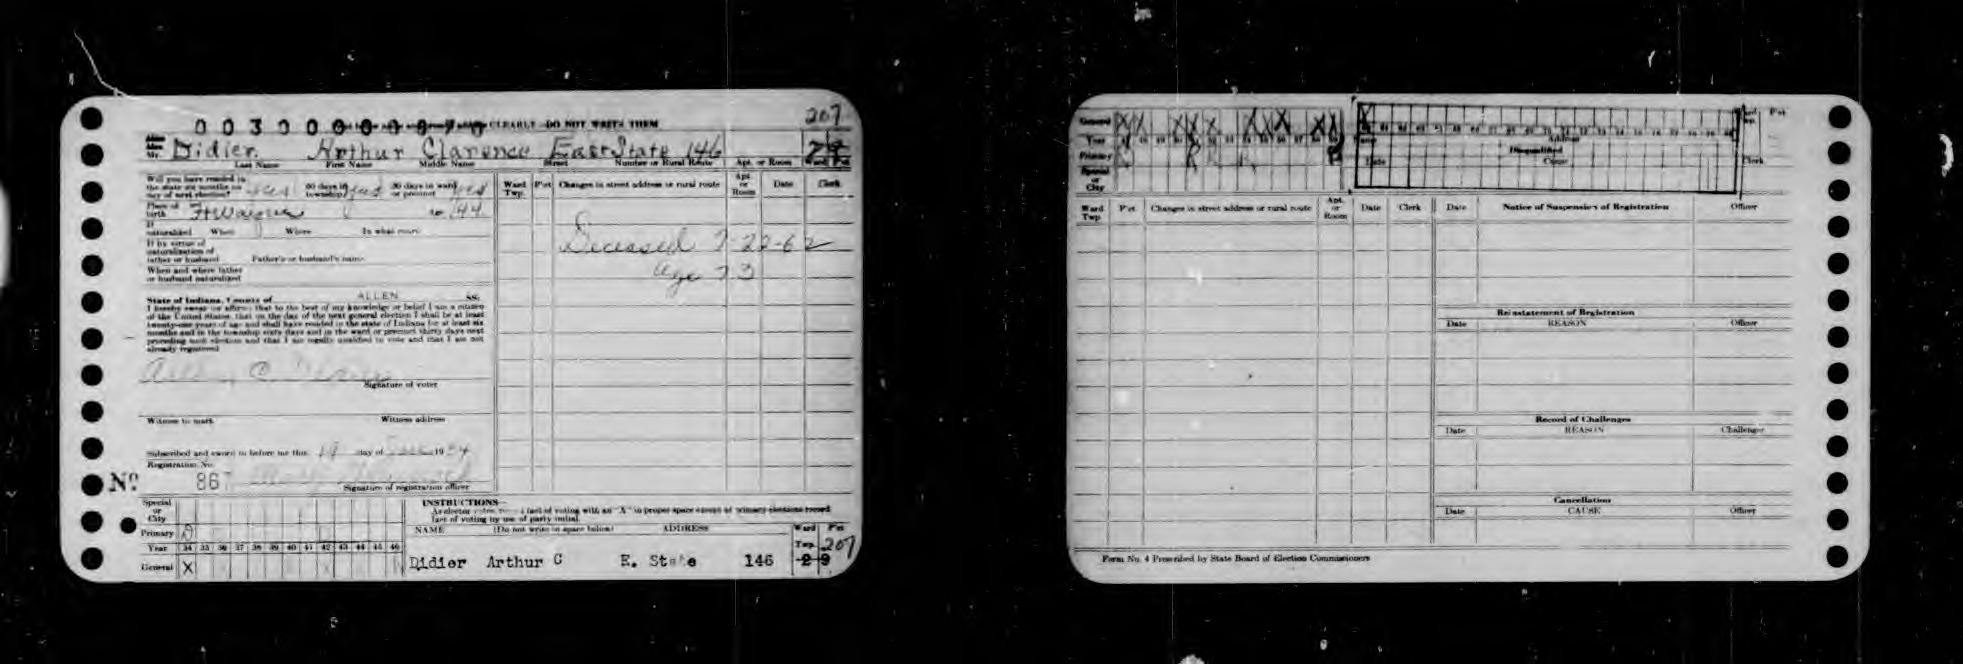 207
CLEARLY—DO NOT WRITE THEM
Mr. Didier. Arthur Clarence East State 146
Last Name First Name Middle Name Street Number or Rural Route Apt. or Room Ward Pct
Will you have resided in
the state six months on yes 60 days in yes 30 days in ward yes
day of next election? township? or precinct
Place of
birth Ft Wayne
If
naturalized When Where In what court
If by virtue of
naturalization of
father or husband Father's or husband's name
When and where father
or husband naturalized
State of Indiana, County of ALLEN SS:
I hereby swear (or affirm) that to the best of my knowledge or belief I am a citizen
of the United States; that on the day of the next general election I shall be at least
twenty-one years of age and shall have resided in the state of Indiana for at least six
months and in the township sixty days and in the ward or precinct thirty days next
preceding such election and that I am legally qualified to vote and that I am not
already registered
Signature of voter
Witness to mark Witness address
Subscribed and sworn to before me this 19 day of 1934
Registration No.
No. 867
Signature of registration officer
Ward Twp. P'ct Changes in street address or rural route Apt. or Room Date Clerk
Deceased 7-22-62
age 73
Special
or
City
Primary
Year 34 35 36 37 38 39 40 41 42 43 44 45 46
General X
INSTRUCTIONS—
As elector votes fact of voting with an "X" in proper space except at primary elections record
fact of voting by use of party initial.
NAME (Do not write in space below) ADDRESS Ward Twp. P'ct
207
Didier Arthur C E. State 146 2 9
General
Year
Primary
Special
or
City
Name Address
Disqualified
Date Cause Clerk
Ward Twp. P'ct
Ward Twp. P'ct Changes in street address or rural route Apt. or Room Date Clerk
Date Notice of Suspension of Registration Officer
Reinstatement of Registration
Date REASON Officer
Record of Challenges
Date REASON Challenger
Cancellation
Date CAUSE Officer
Form No. 4 Prescribed by State Board of Election Commissioners